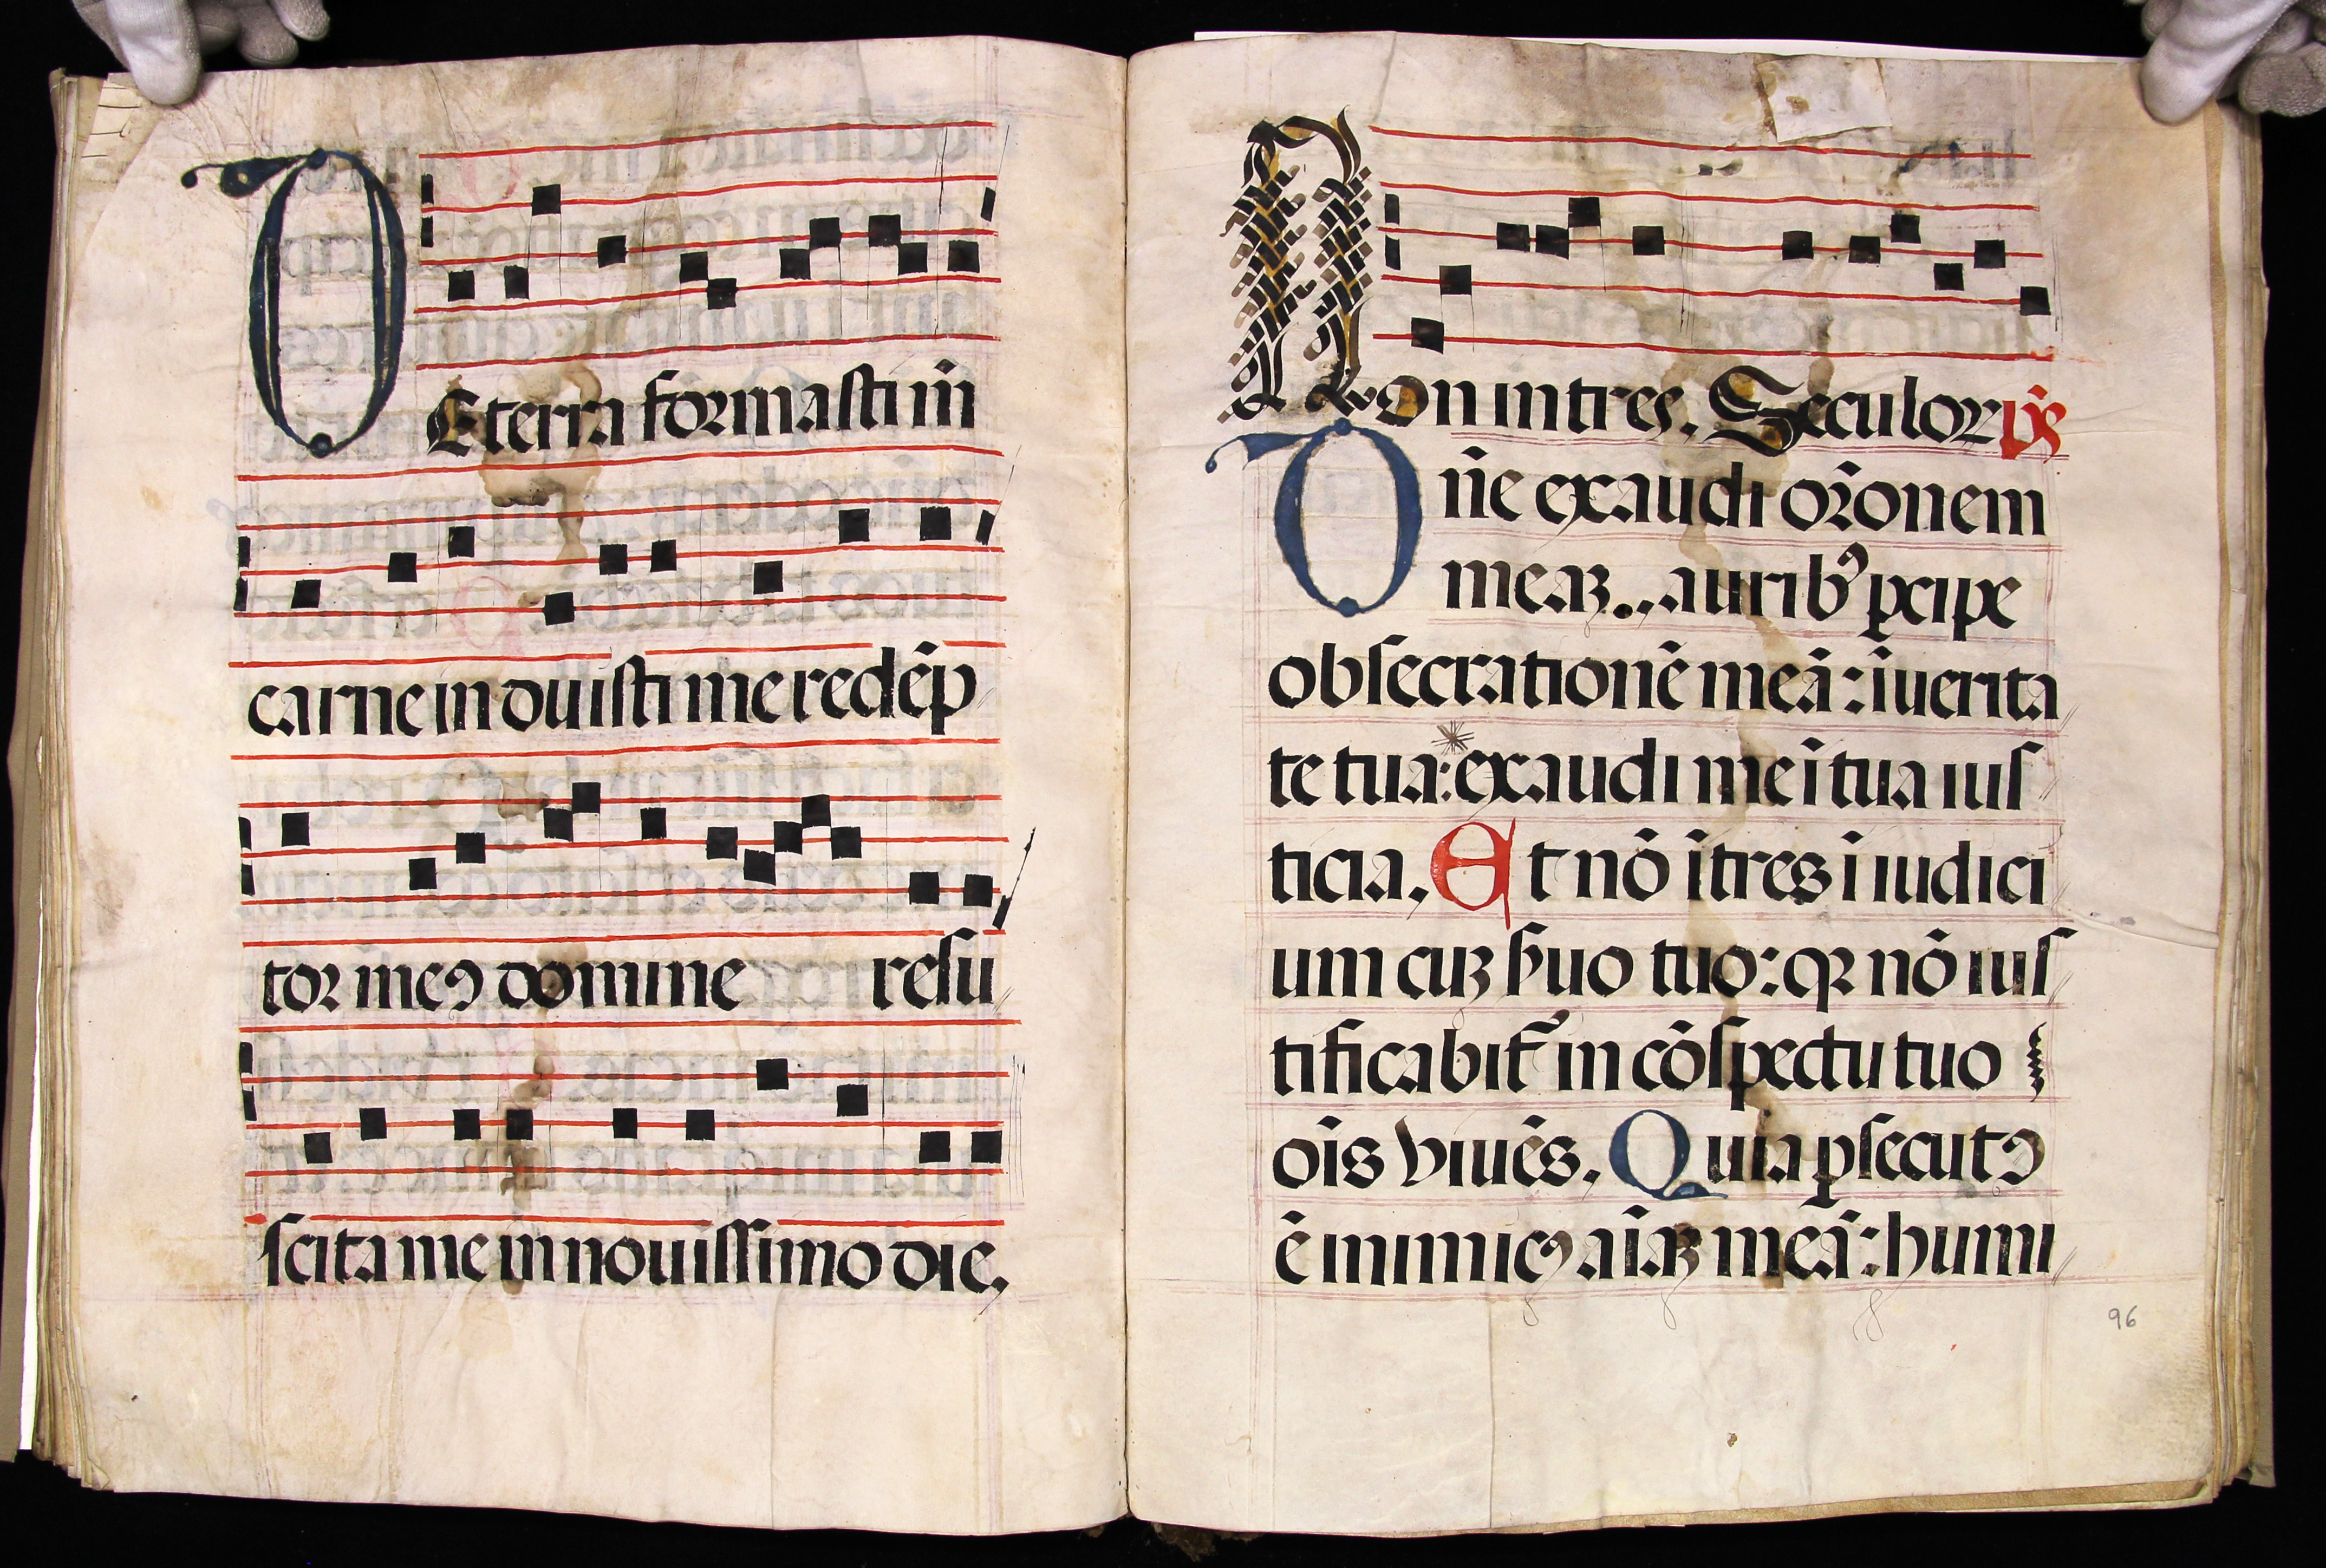 DE terra formasti m̄
carne induisti me redēp
tor meꝯ domine resu
scita me in nouissimo die,
Non intres. Seculor p̄s
Dn̄e exaudi or̄onem
meaꝫ.. auribꝰ ꝑcipe
obsecrationē meā: ī uerita
te tua: * exaudi me ī tua ius
ticia. Et nō ītres ī iudici
um cuꝫ s̄uo tuo: qꝛ nō ius
tificabit᷑ in cōspectu tuo
oīs viuēs. Quia ꝑsecutꝯ
ē inimicꝯ aīaꝫ meā: humi
96